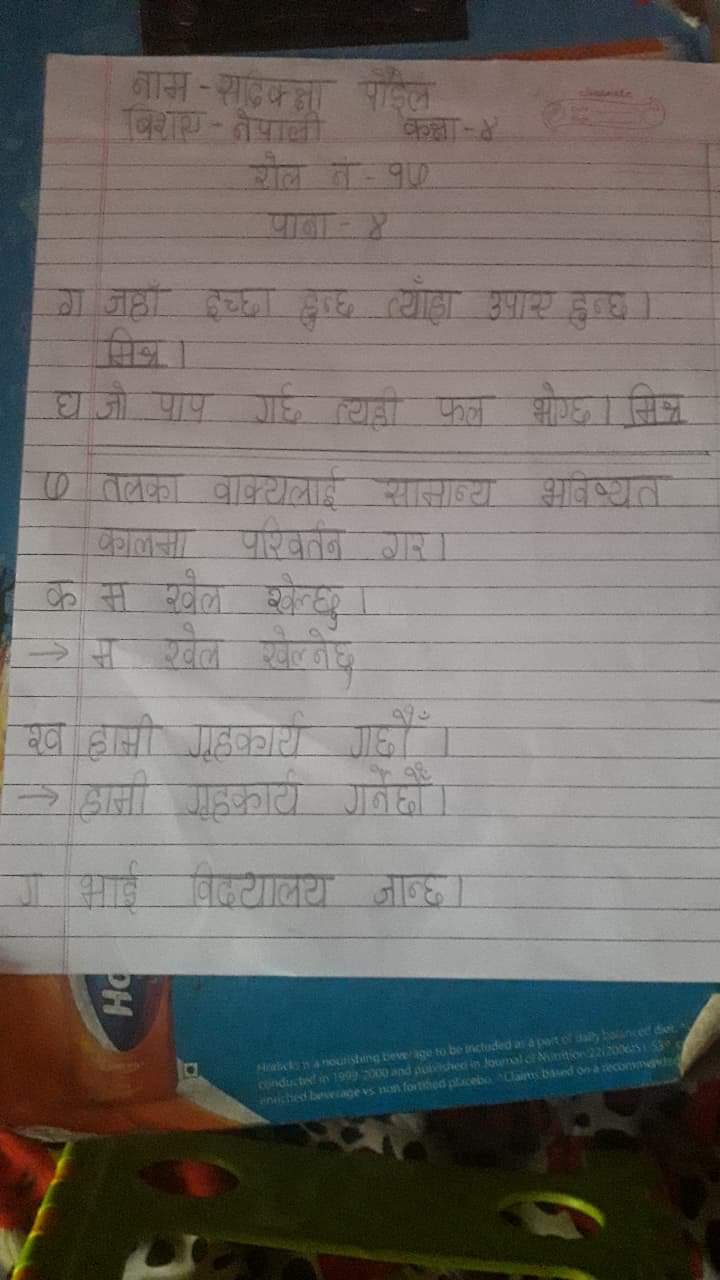 classmate
नाम - सदिक्षा पौडेल
बिशय - नेपाली कक्षा - ४
रोल नं - १५
पाना - ४
ग जहाँ इच्छा हुन्छ त्याँहा उपाय हुन्छ ।
मिश्र ।
घ जो पाप गर्छ त्यही फल भोग्छ । मिश्र
५ तलका वाक्यलाई सामान्य भविष्यत
कालमा परिवर्तन गर ।
क म खेल खेल्छु ।
→ म खेल खेल्नेछु
ख हामी गृहकार्य गर्छौँ ।
→ हामी गृहकार्य गर्नेछौँ ।
ग भाई विद्यालय जान्छ ।
Horlicks is a nourishing beverage to be included as a part of daily balanced diet.
conducted in 1999-2000 and published in Journal of Nutrition 22(2006)
enriched beverage vs. non fortified placebo. ^Claims based on a recommended